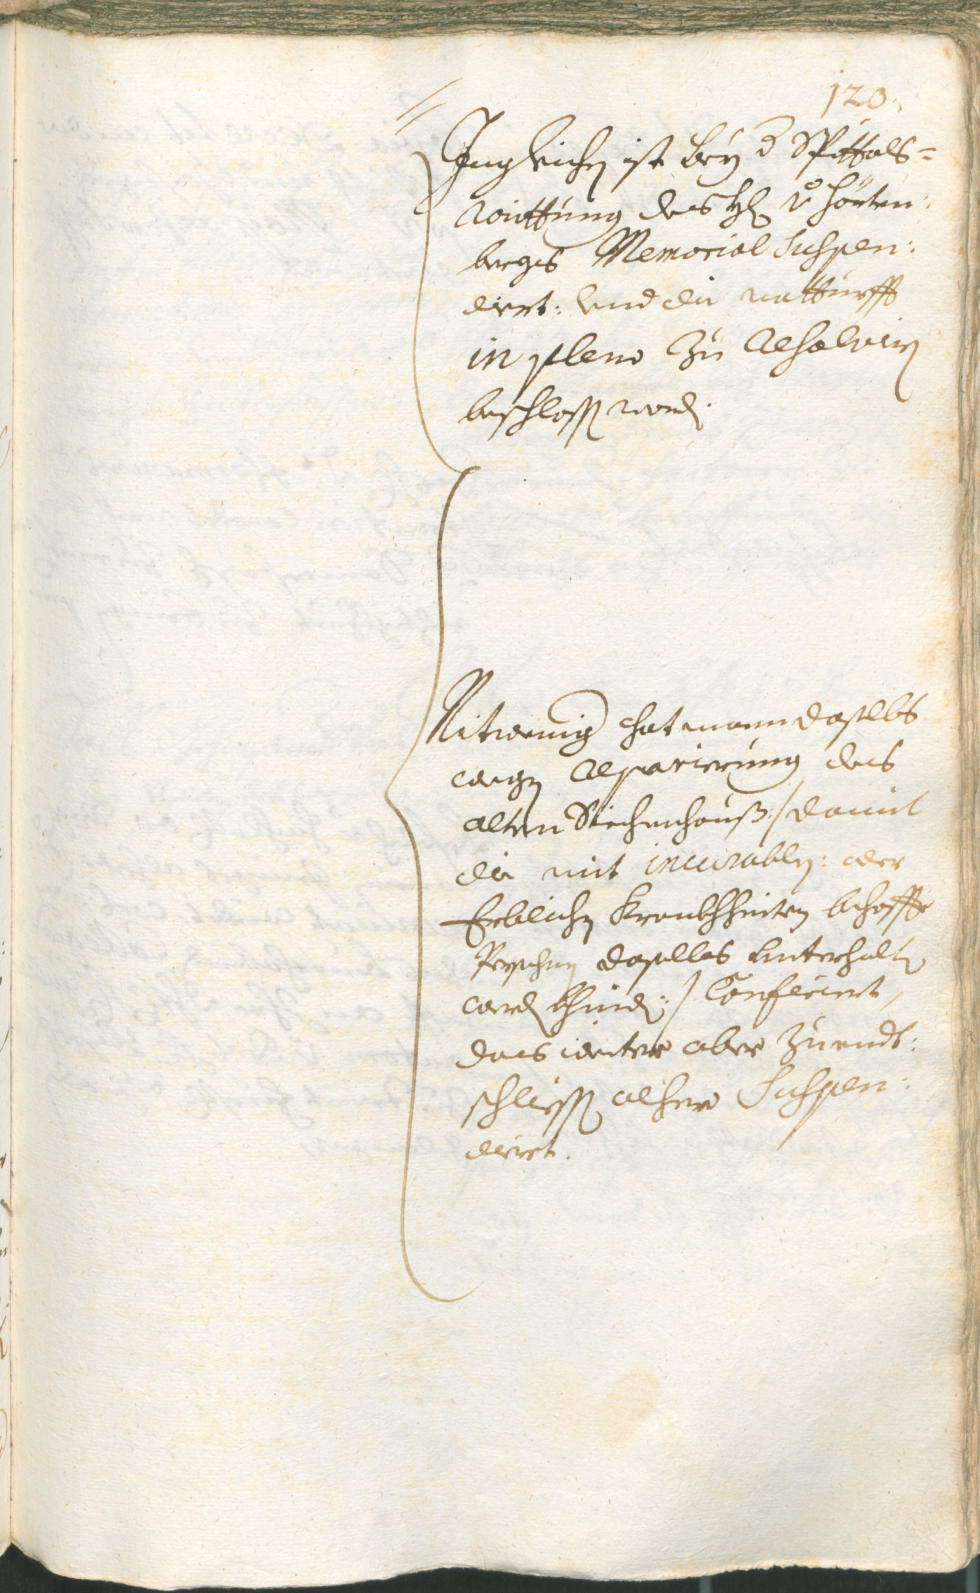 120.
Ingleichen ist bey d Spittals-
raittung des H v Hörten:
bergs Memorial suspen:
diert: und die notturfft
in pleno zu resolviern
beschlossen word.
Nitwenig hat mann daselbs
wegen reparierung des
alten Siechenhauß / damit
die mit incurablen: oder
Erblichen Kranckheiten behaffte
Persohnen daselbs unterhalten
werden khinden: / Conferiert,
das weitere aber zu endt:
schliessen alhero suspen:
diert.